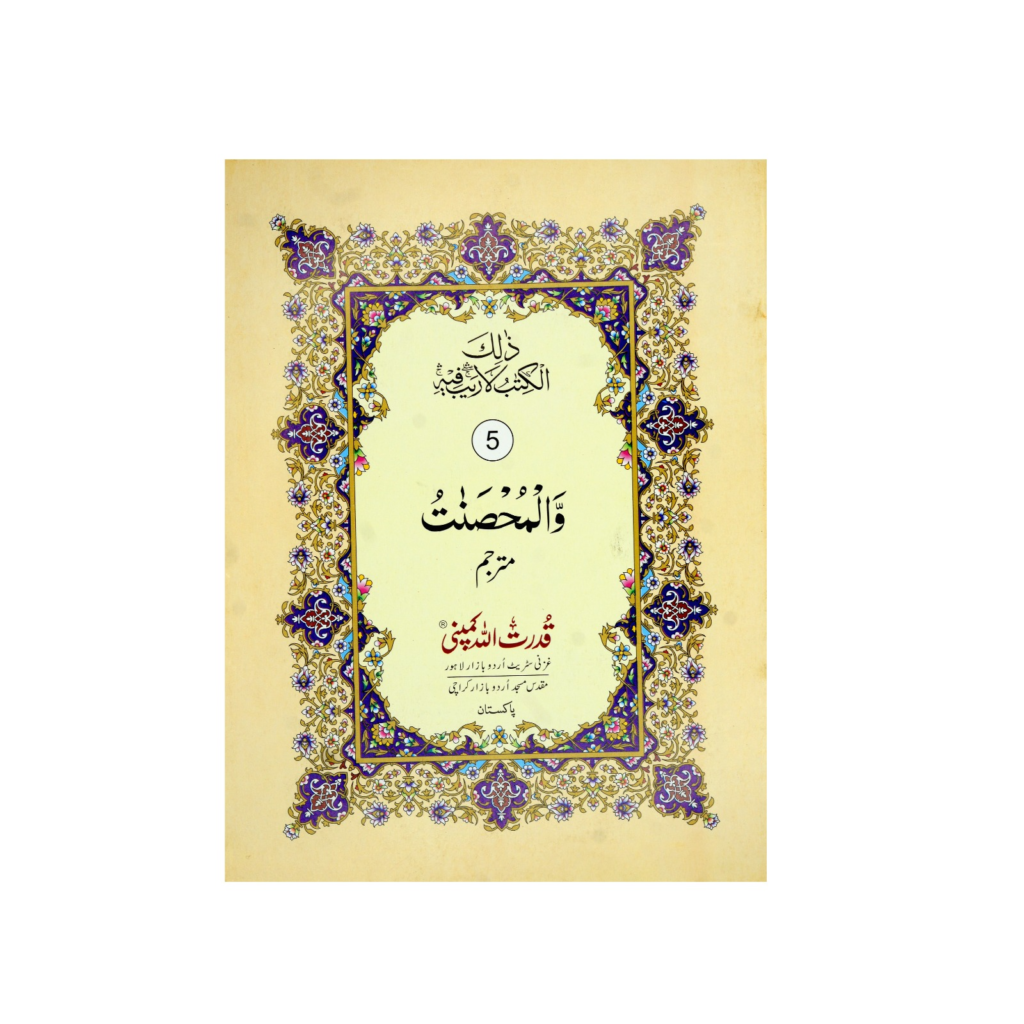 ذٰلِكَ
الْكِتٰبُ لَا رَيْبَ ۛ فِيْهِ ۛ
5
وَّالْمُحْصَنٰتُ
مترجم
قُدرت اللہ کمپنی ®
غزنی سٹریٹ اُردو بازار لاہور
مقدس مسجد اُردو بازار کراچی
پاکستان